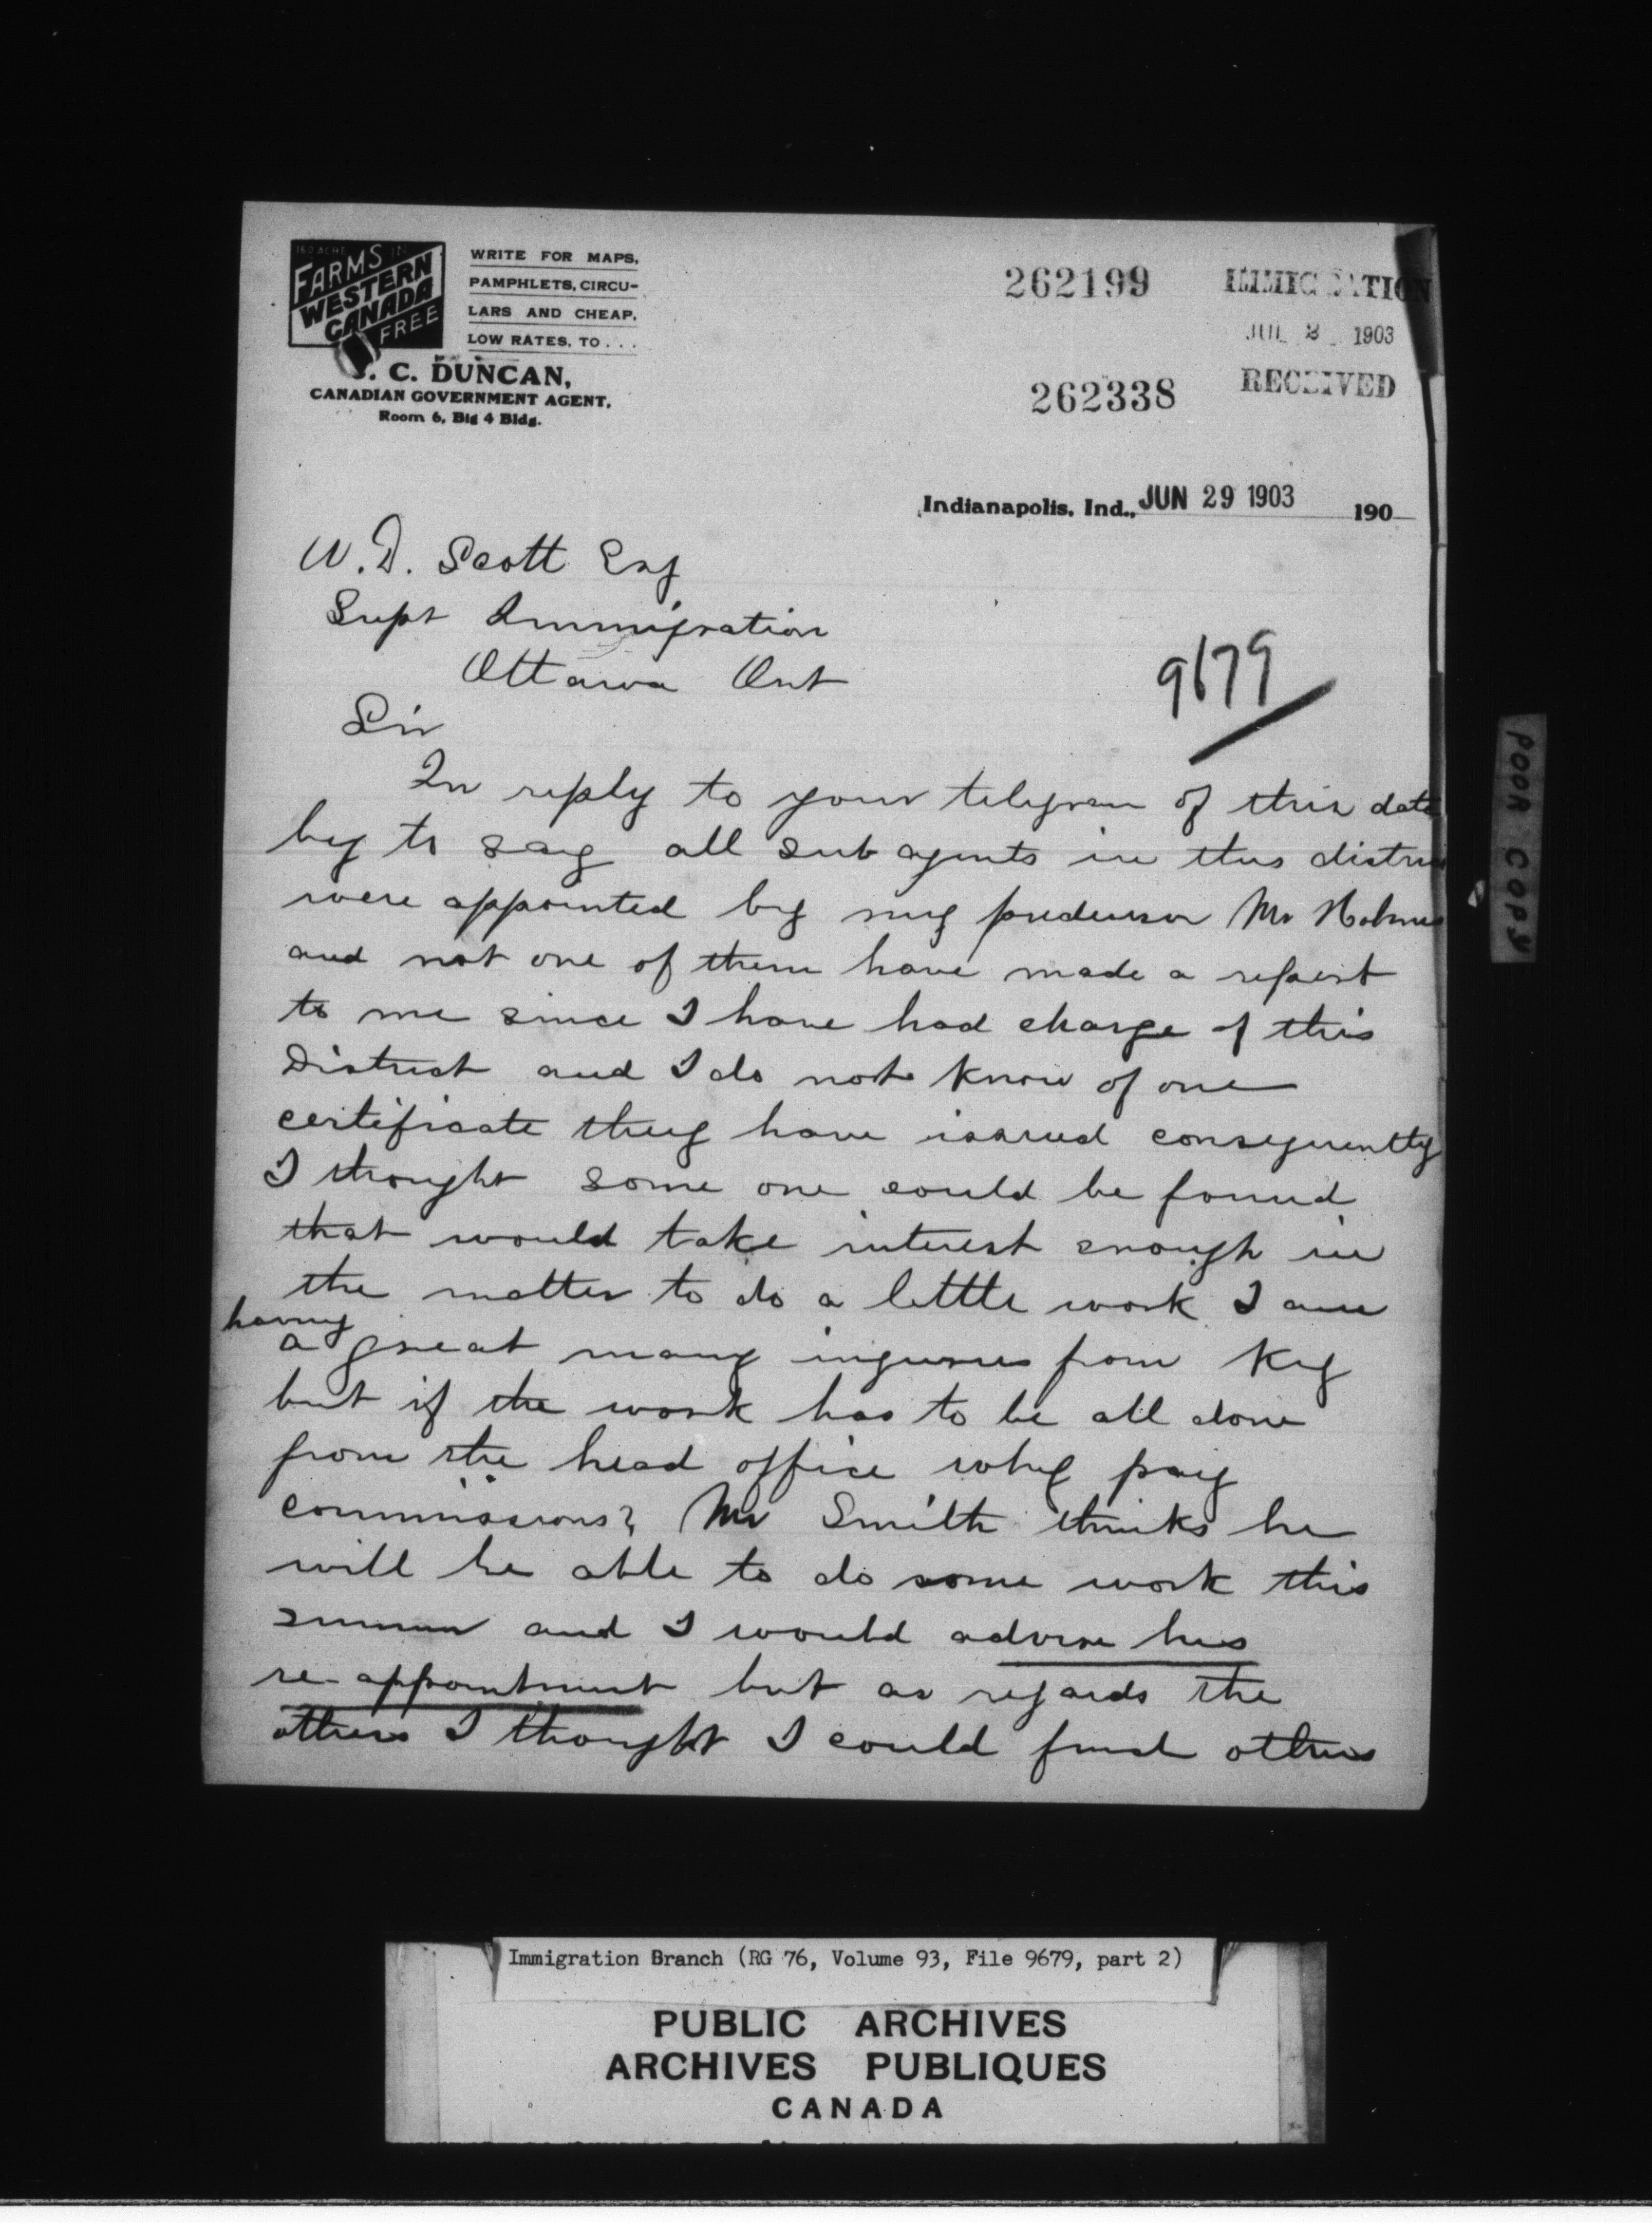 160 ACRE
FARMS IN
WESTERN
CANADA
FREE
WRITE FOR MAPS,
PAMPHLETS, CIRCU-
LARS AND CHEAP,
LOW RATES, TO . . .
. C. DUNCAN,
CANADIAN GOVERNMENT AGENT,
Room 6, Big 4 Bldg.
262199
IMMIGRATION
JUL 2 1903
RECEIVED
262338
Indianapolis, Ind., JUN 29 1903 190
W. D. Scott Esq
Supt Immigration
Ottawa Ont
9679
Sir
In reply to your telegram of this date
beg to say all sub agents in this distri
were appointed by my predecessor Mr Holmes
and not one of them have made a report
to me since I have had charge of this
District and I do not know of one
certificate they have issued consequently
I thought some one could be found
that would take interest enough in
the matter to do a little work I am
having
a great many inquiries from Ky
but if the work has to be all done
from the head office why pay
commissions? Mr Smith thinks he
will be able to do some work this
summer and I would advise his
re-appointment but as regards the
others I thought I could find others
POOR COPY
Immigration Branch (RG 76, Volume 93, File 9679, part 2)
PUBLIC ARCHIVES
ARCHIVES PUBLIQUES
CANADA